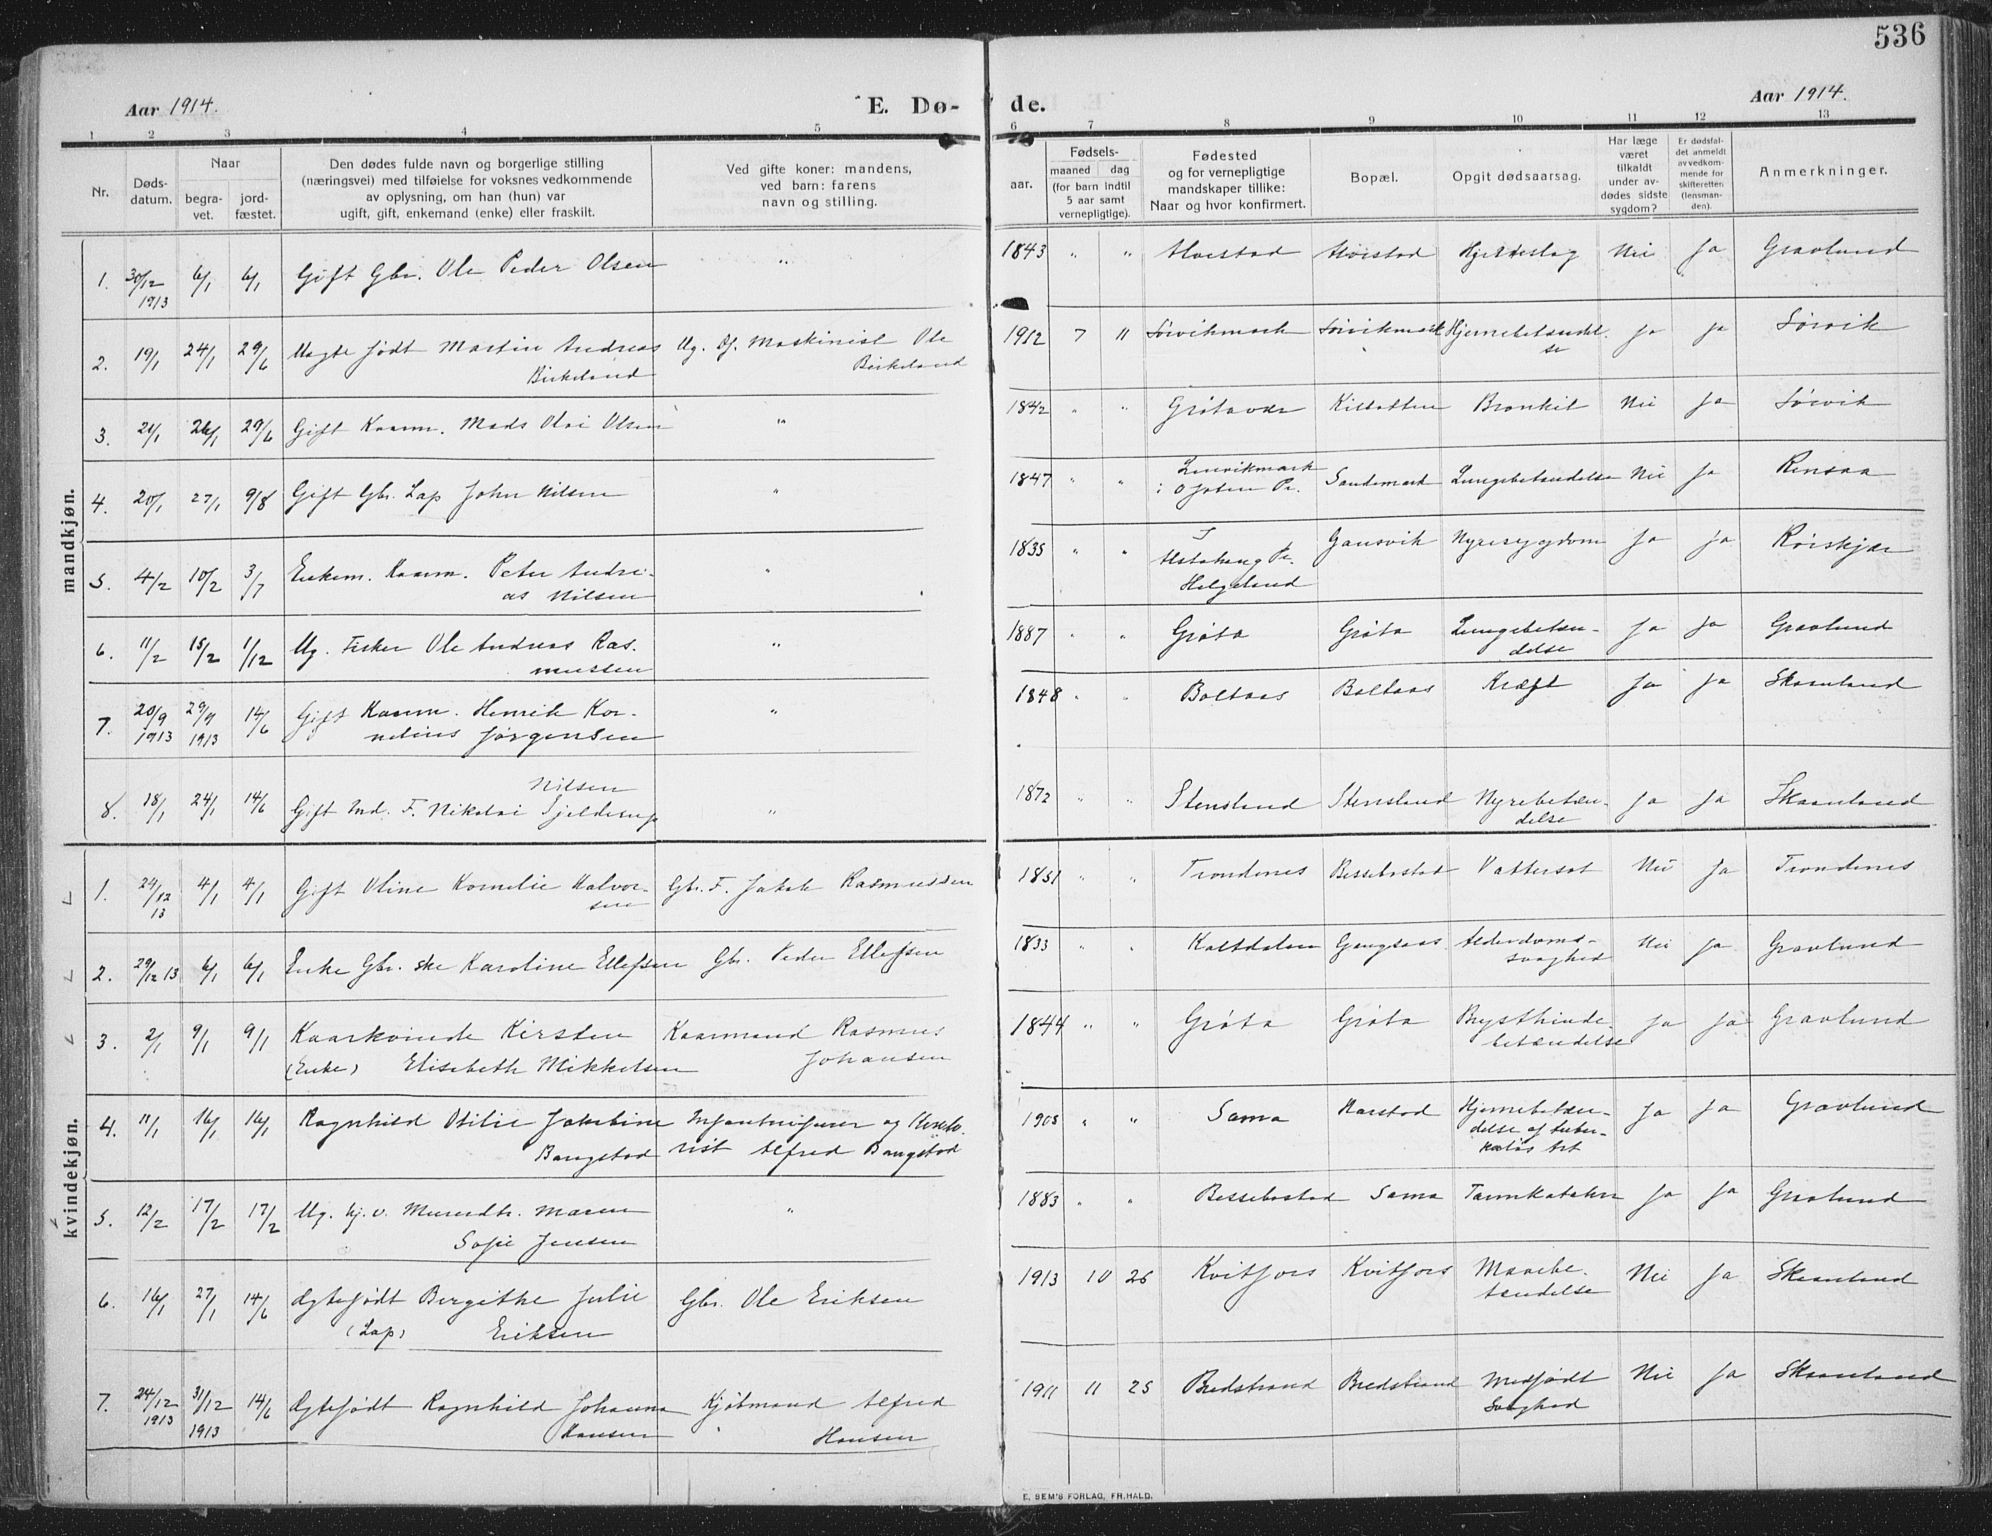 536
Aar 1914.
E. Dø- de.
Aar 1914.
1 2 3 4 5 6 7 8 9 10 11 12 13
Nr.
Døds-
datum.
Naar
begra-
vet.
jord-
fæstet.
Den dødes fulde navn og borgerlige stilling
(næringsvei) med tilføielse for voksnes vedkommende
av oplysning, om han (hun) var
ugift, gift, enkemand (enke) eller fraskilt.
Ved gifte koner: mandens,
ved barn: farens
navn og stilling.
Fødsels-
aar.
maaned dag
(for barn indtil
5 aar samt
vernepligtige).
Fødested
og for vernepligtige
mandskaper tillike:
Naar og hvor konfirmert.
Bopæl.
Opgit dødsaarsag.
Har læge
været
tilkaldt
under av-
dødes sidste
sygdom?
Er dødsfal-
det anmeldt
av vedkom-
mende for
skifteretten
(lensman-
den).
Anmerkninger.
mandkjøn.
1. 30/12 1913 6/1 6/1 Gift Gbr. Ole Peder Olsen " 1843 " " Nei Ja Gravlund
2. 19/1 24/1 29/6 Uegte født Martin Andreas Birkeland Ug. Df. Maskinist Ole Birkeland 1912 7 11 Sørvikmark Sørvikmark Hjernebetændelse Ja Ja Sørvik
3. 21/1 26/1 29/6 Gift Kaarm. Mads Olai Olsen " 1842 " " Grøtavær Bronkit Nei Ja Sørvik
4. 20/1 27/1 9/8 Gift Gbr. Lap John Nilsen " 1847 " " Lenvikmark i Ofoten Pr. Sandemark Lungebetændelse Nei Ja Rensaa
5. 4/2 10/2 3/7 Enkem. Kaarm. Peter Andreas Nilsen " 1835 " " Alstahaug Pr. Helgeland Gausvik Nyresygdom Ja Ja Rørskjær
6. 11/2 15/2 1/12 Ug. Fisker Ole Andreas Rasmussen " 1887 " " Grøta Grøta Lungebetændelse Ja Ja Gravlund
7. 20/9 1913 29/9 1913 14/6 Gift Kaarm. Henrik Kornelius Jørgensen " 1848 " " Boltaas Boltaas Kræft Ja Ja Skaanland
8. 18/1 24/1 14/6 Gift Ind. F. Nikolai Sjelderup Nilsen " 1872 " " Stensland Stensland Nyrebetændelse Ja Ja Skaanland
kvindekjøn.
1. 24/12 13 4/1 4/1 Gift Oline Kornelie Halvorsen Gbr. F. Jakob Rasmussen 1851 " " Trondenes Bessebostad Vattersot Nei Ja Trondenes
2. 29/12 13 6/1 6/1 Enke Gbr. ske Karoline Ellefsen Gbr. Peder Ellefsen 1833 " " Kaltdalen Gangsaas Alderdomssvaghed Nei Ja Gravlund
3. 2/1 9/1 9/1 Kaarkvinde Kirsten (Enke) Elisebeth Mikkelsen Kaarmand Rasmus Johansen 1844 " " Grøta Grøta Brysthindebetændelse Ja Ja Gravlund
4. 11/1 16/1 16/1 Ragnhild Otilie Jakobine Bangstad Alfred Bangstad 1905 " " Sama Harstad Hjernebetændelse af tuberkuløs Art Ja Ja Gravlund
5. 12/2 17/2 17/2 Ug. hj. v. Murerdtr. Maren Sofie Jensen " 1883 " " Bessebostad Sama Tarmkatahr Ja Ja Gravlund
6. 16/1 27/1 14/6 Ægtefødt Bergithe Julie (Lap) Eriksen Gbr. Ole Eriksen 1913 10 26 Kvitfors Kvitfors Mavebetændelse Nei Ja Skaanland
7. 24/12 1913 31/12 1913 14/6 Ægtefødt Ragnhild Johanna Hansen Kjøbmand Alfred Hansen 1911 11 25 Bredstrand Bredstrand Medfødt Svaghed Nei Ja Skaanland
E. SEM'S FORLAG, FR.HALD.